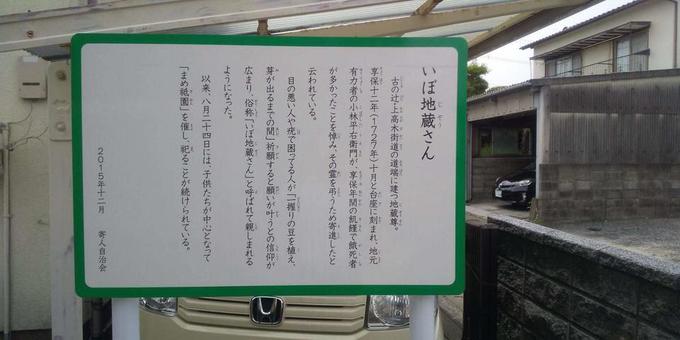 いぼ地蔵さん
古の辻上高木街道の道端に建つ地蔵尊。
享保十二年(1727年)十月と台座に刻まれ、地元
有力者の小林平右衛門が、享保年間の飢饉で餓死者
が多かったことを悼み、その霊を弔うため寄進したと
云われている。
目の悪い人や疣で困ってる人が「一握りの豆を植え、
芽が出るまでの間」祈願すると願いが叶うとの信仰が
広まり、俗称「いぼ地蔵さん」と呼ばれて親しまれる
ようになった。
以来、八月二十四日には、子供たちが中心となって
「まめ祇園」を催し、祀ることが続けられている。
2015年十二月 寄人自治会